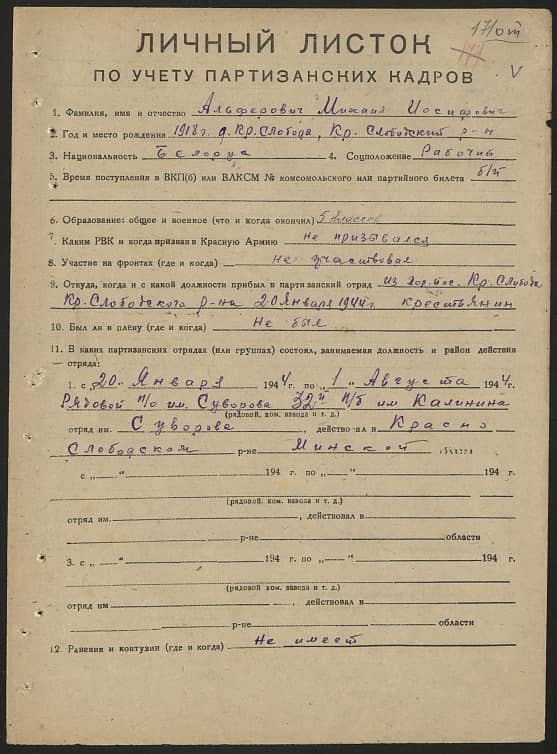 171 от
V
ЛИЧНЫЙ ЛИСТОК
ПО УЧЕТУ ПАРТИЗАНСКИХ КАДРОВ
1. Фамилия, имя и отчество Альферович Михаил Иосифович
2. Год и место рождения 1918 г. д. Кр. Слобода, Кр. Слободский р-н
3. Национальность Белорус 4. Соцположение Рабочий
5. Время поступления в ВКП(б) или ВЛКСМ № комсомольского или партийного билета б/п
6. Образование: общее и военное (что и когда окончил) 5 классов
7. Каким РВК и когда призван в Красную Армию не призывался
8. Участие на фронтах (где и когда) не участвовал
9. Откуда, когда и с какой должности прибыл в партизанский отряд из гор. пос. Кр. Слобода
Кр. Слободского р-на 20 Января 1944 г. крестьянин
10. Был ли в плену (где и когда) Не был
11. В каких партизанских отрядах (или группах) состоял, занимаемая должность и район действия
отряда:
1. с „20" Января 1944 г. по „1" Августа 1944 г.
Рядовой п/о им. Суворова 32й п/б им Калинина
(рядовой, ком. взвода и т. д.)
отряд им. Суворова, действовал в Красно
Слободском р-не Минской области
с „ — " 194 г. по „ — " 194 г.
(рядовой, ком. взвода и т. д.)
отряд им. , действовал в
р-не области
3. с „ — " 194 г. по „ — " 194 г.
(рядовой ком. взвода и т. д.)
отряд им , действовал в
р-не области
12. Ранения и контузии (где и когда) Не имеет